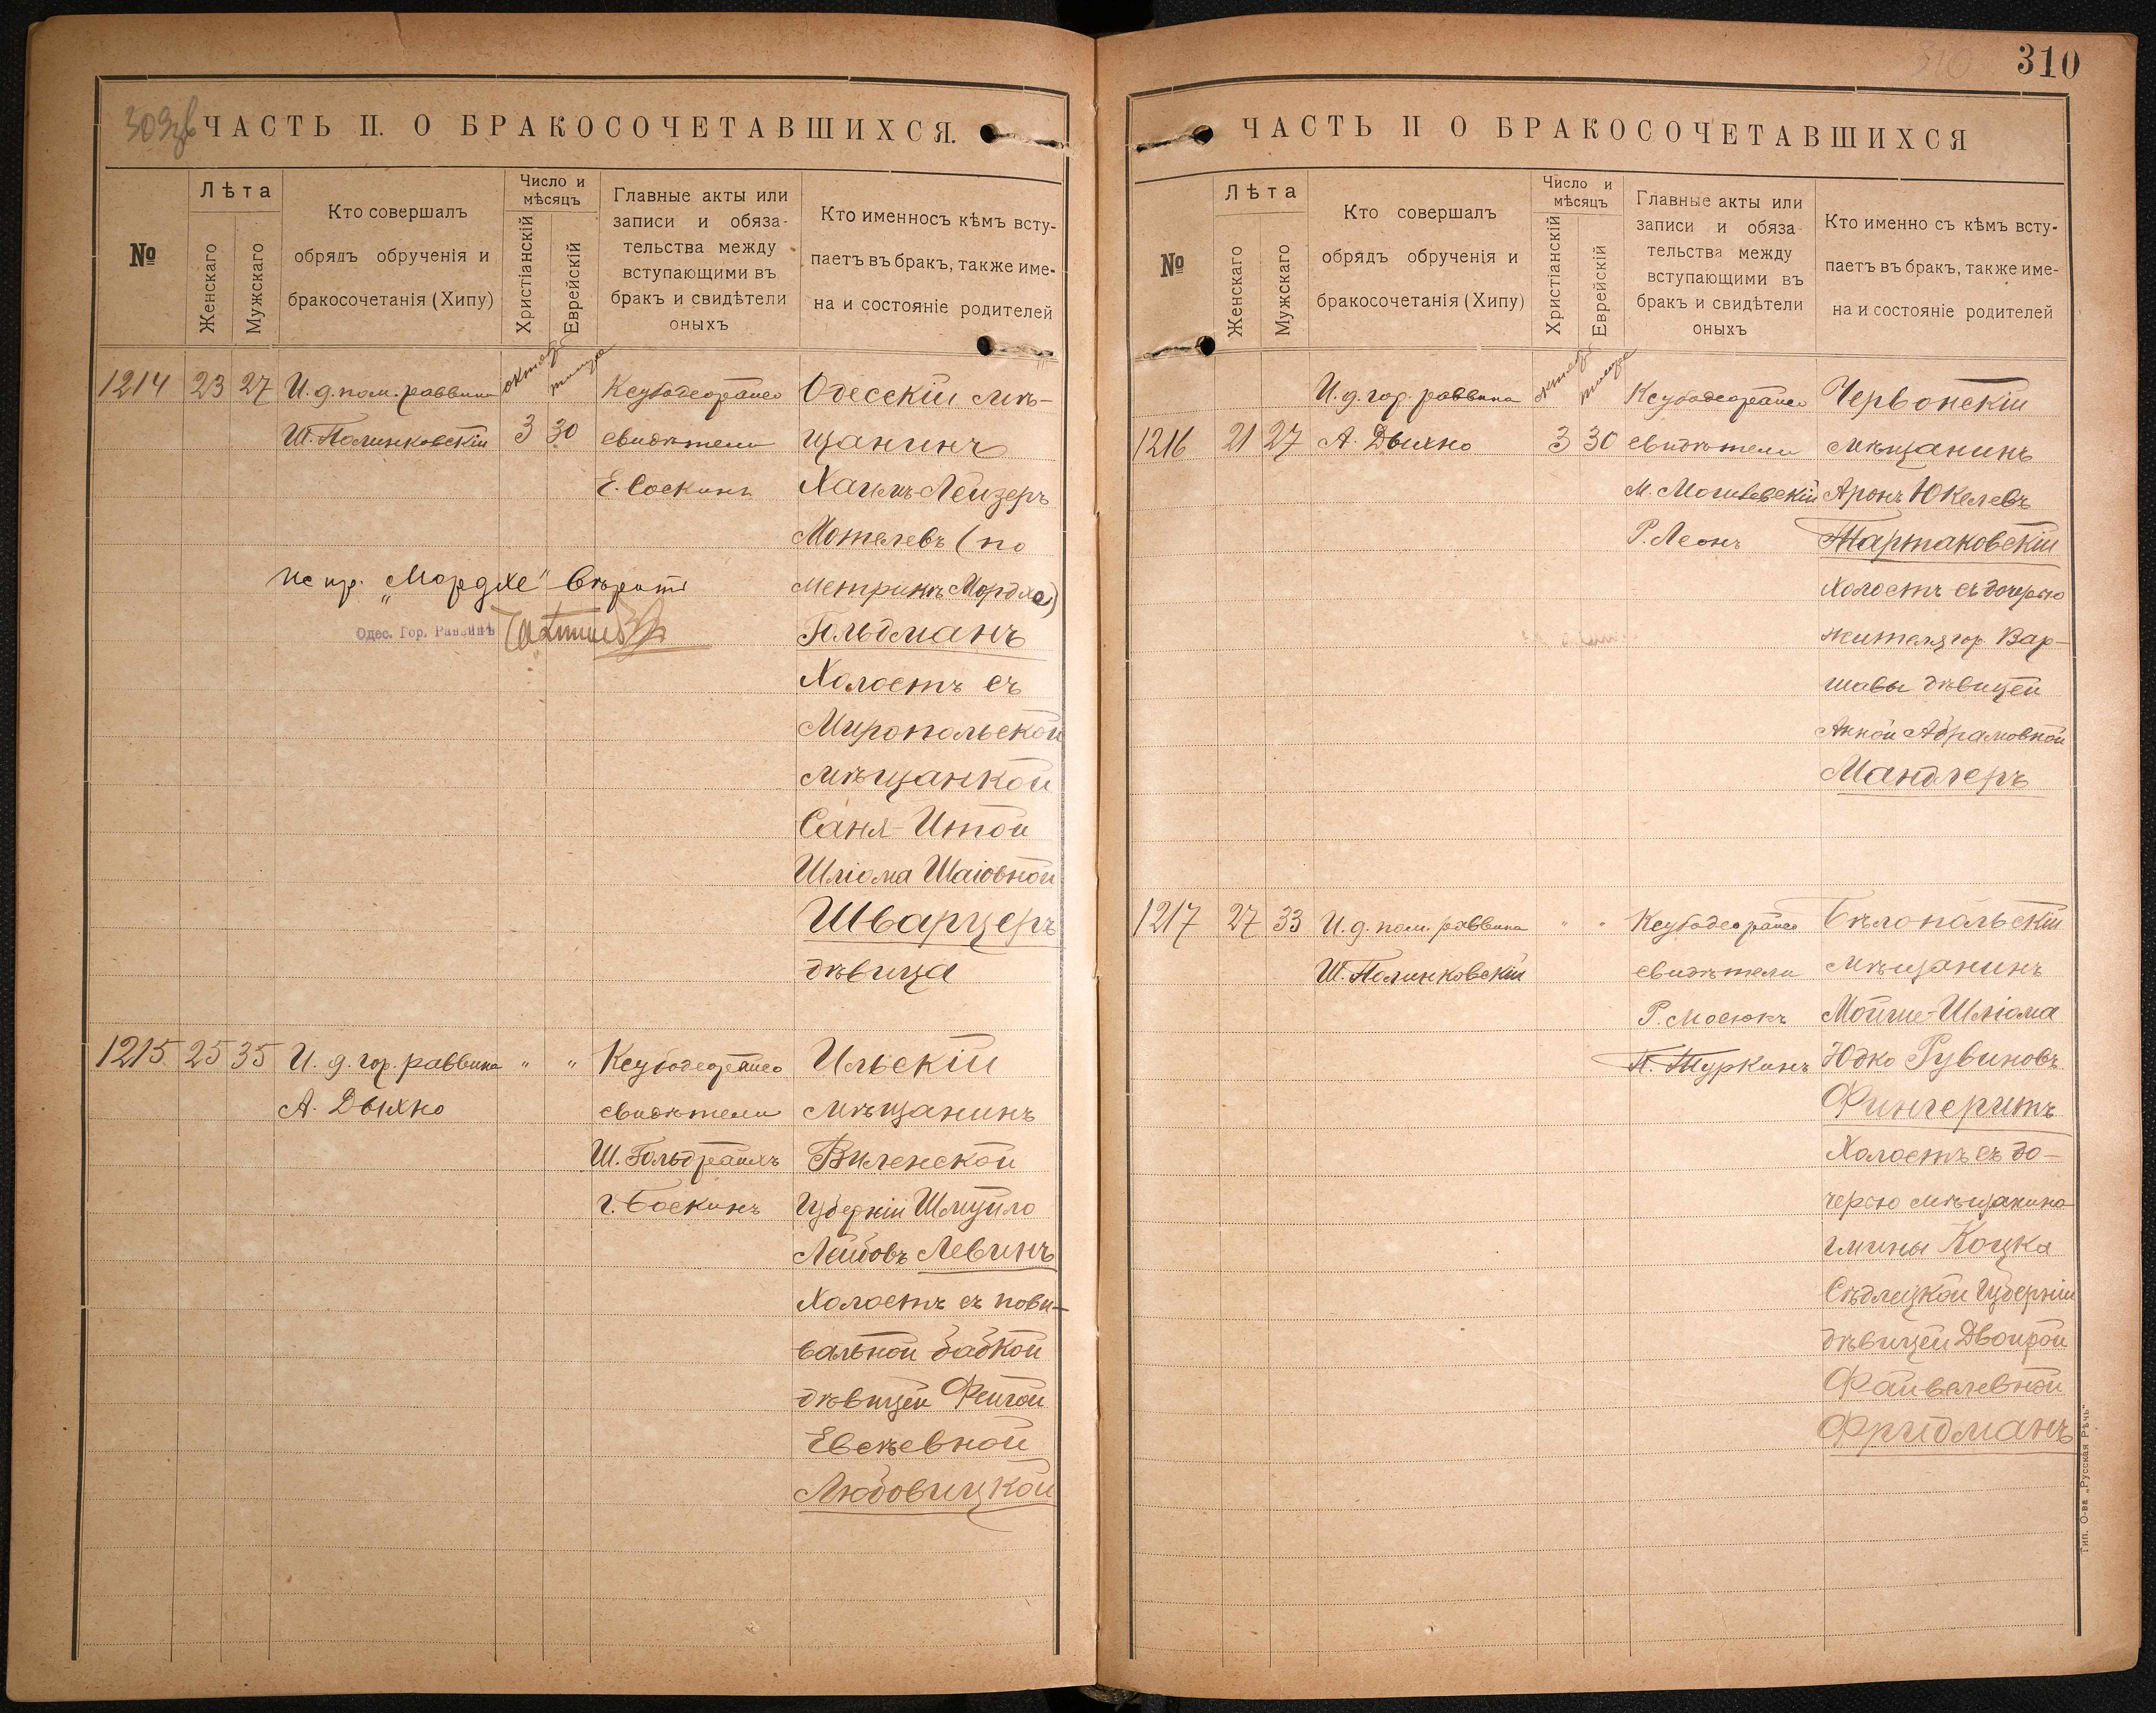 309зв
ЧАСТЬ II. О БРАКОСОЧЕТАВШИХСЯ.
№
Лѣта
Женскаго
Мужскаго
Кто совершалъ
обрядъ обрученія и
бракосочетанія (Хипу)
Число и
мѣсяцъ
Христіанскій
Еврейскій
Главные акты или
записи и обяза-
тельства между
вступающими въ
бракъ и свидѣтели
оныхъ
Кто именносъ кѣмъ всту-
паетъ въ бракъ, также име-
на и состояніе родителей
1214 23 27 И. д. пом. раввина
Ш. Полинковскій
3 30
свидѣтели
Е. Соскинъ
Одесскій мѣ-
щанинъ
Хаимъ-Лейзеръ
Мотелевъ (по
метрикѣ Мордхе)
Гольдманъ
Холостъ съ
Миропольской
мѣщанкой
Саня-Итой
Шліома Шаіовной
Шварцеръ
дѣвица
Испр. „Мордхе" вѣрить
Одес. Гор. Раввинъ
1215 25 35 И. д. гор. раввина " "
А. Дыхно
свидѣтели
Ш. Гольдрайхъ
Г. Боскинъ
Ильскій
мѣщанинъ
Виленской
Губерніи Шмуйло
Лейбовъ Левинъ
Холостъ съ пови-
вальной бабкой
дѣвицей Фейгой
Евсѣевной
Любовицкой
310
310
ЧАСТЬ II О БРАКОСОЧЕТАВШИХСЯ
№
Лѣта
Женскаго
Мужскаго
Кто совершалъ
обрядъ обрученія и
бракосочетанія (Хипу)
Число и
мѣсяцъ
Христіанскій
Еврейскій
Главные акты или
записи и обяза-
тельства между
вступающими въ
бракъ и свидѣтели
оныхъ
Кто именно съ кѣмъ всту-
паетъ въ бракъ, также име-
на и состояніе родителей
И. д. гор. раввина
1216 21 27 А. Дыхно 3 30
свидѣтели
М. Могилевскій
Р. Леонъ
Червонскій
мѣщанинъ
Аронъ Юкелевъ
Тартаковскій
Холостъ съ дочерью
жителя гор. Вар-
шавы дѣвицей
Анной Абрамовной
Мандлеръ
1217 27 33 И. д. пом. раввина " "
Ш. Полинковскій
свидѣтели
Р. Мосюкъ
П. Туркинъ
Бѣлопольскій
мѣщанинъ
Мойше-Шліома
Юдко Рувиновъ
Фингеритъ
Холостъ съ до-
черью мѣщанина
гмины Коцка
Сѣдлецкой Губерніи
дѣвицей Двойрой
Файвелевной
Фридманъ
Тип. О-ва „Русская Рѣчь"